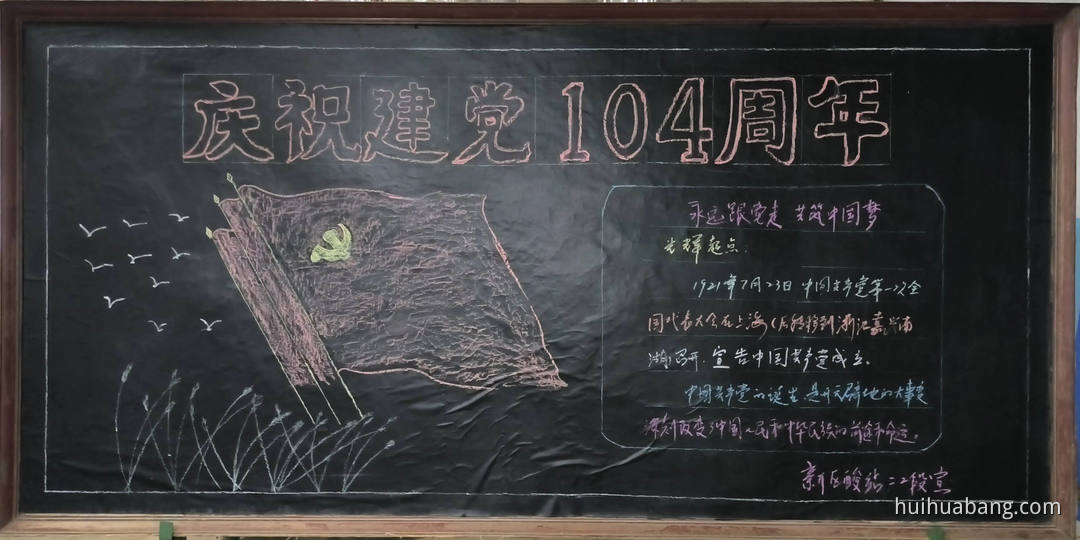 庆祝建党104周年
永远跟党走 共筑中国梦
光辉起点：
1921年7月23日 中国共产党第一次全
国代表大会在上海（后转移到浙江嘉兴南
湖）召开，宣告中国共产党成立。
中国共产党的诞生是开天辟地的大事变
深刻改变了中国人民和中华民族的前途和命运。
新区酸站二工段宣
huihuabang.com